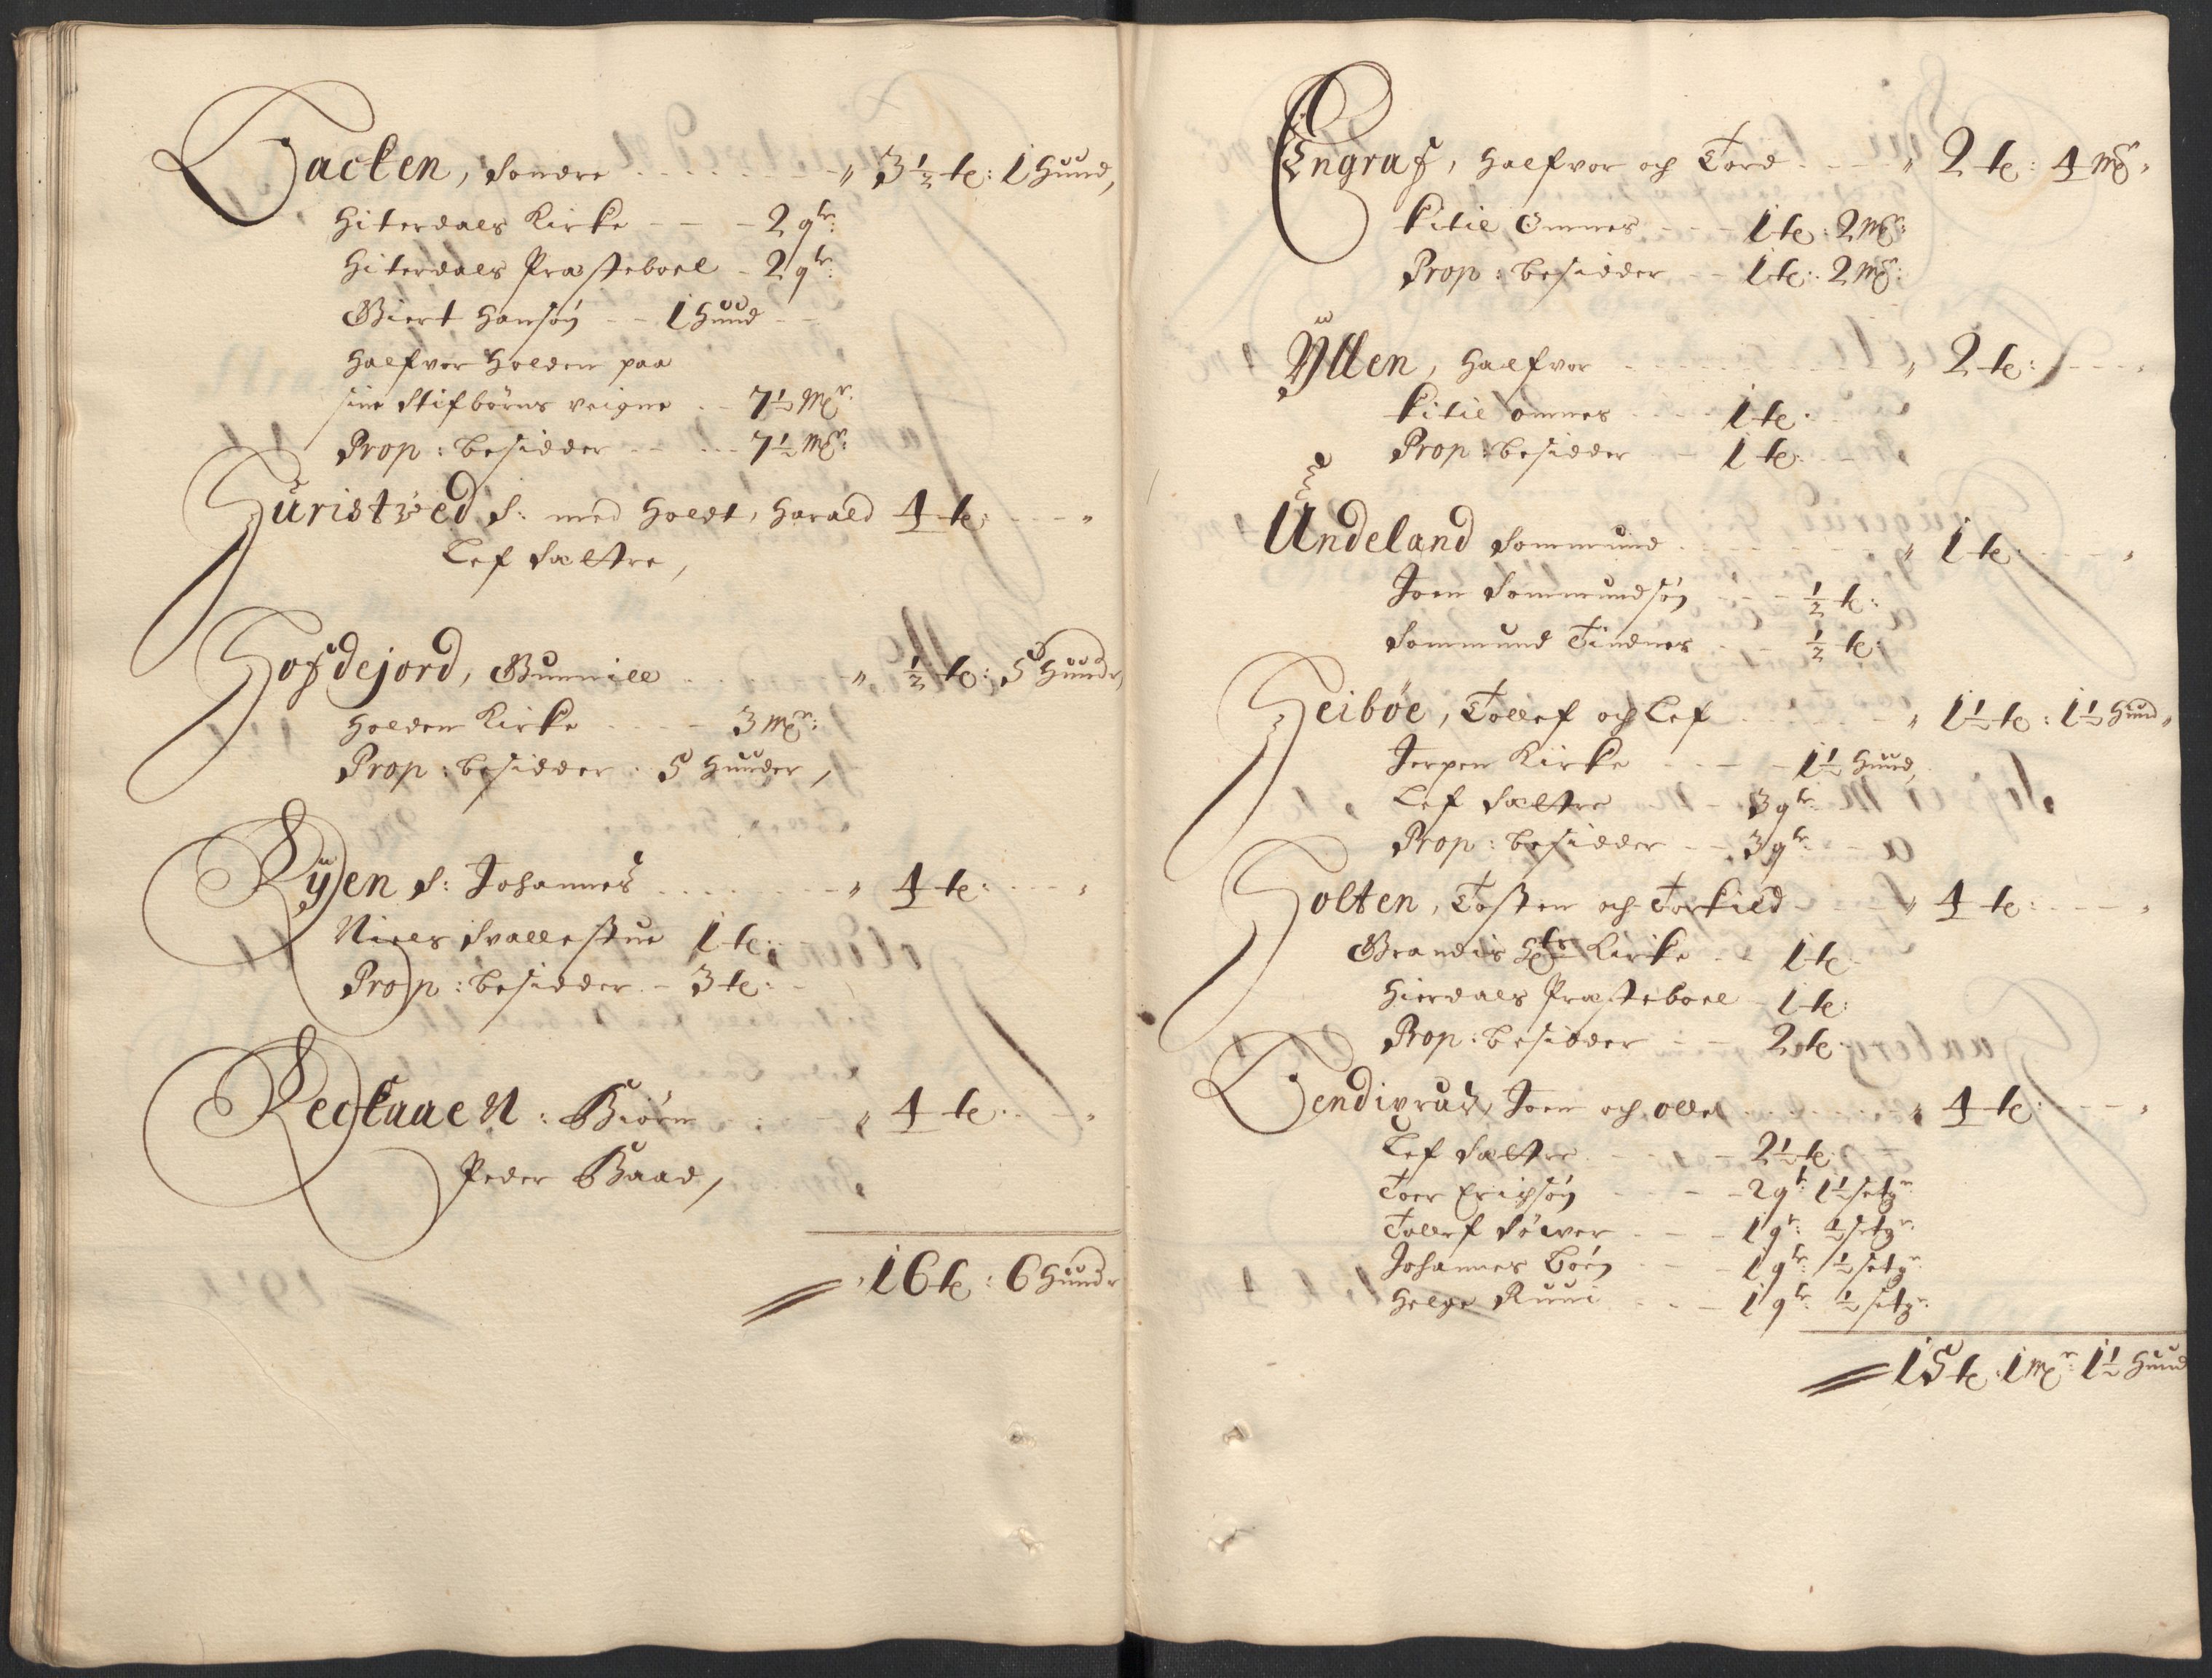 Backen, Sondre . . . . . . . " 3½ t: 1 Hund,
Hiterdals Kirke - - - 2 qtr:
Hiterdals Præsteboel - 2 qtr:
Giert Hansøn - - 1 Hund - -
Halfvor Holden paa
sine Stifbørns veigne . - 7½ Mrr.
Prop: besidder - - . . . 7½ Mrr:
Huristved S: med Holdt, Harald 4 t: - - - "
Lef Sæltre,
Hofdejord, Gunnild . . . " ½ t: 5 Hundr,
Holden Kirke . . . . 3 Mrr:
Prop: besidder . 5 Hunder,
Rÿen S: Johannes . . . . . . . " 4 t: - - - "
Niels Svallestue 1 t:
Prop: besidder. - 3 t: -
Rectaaen: Biørn . . . " 4 t: - - - "
Peder Baad,
16 t: 6 Hundr
Engraf, Halfvor och Tord - - - " 2 t: 4 Mrr "
Kitil Omnes - - - 1 t: 2 Mrr:
Prop: besidder - - 1 t: 2 Mrr:
Ÿllen, Halfvor . . . . . . . " 2 t: - - - "
Kitil Omnes . . . . 1 t:
Prop: besidder - - 1 t:
Undeland Sommund . . . . . " 1 t: - - - "
Joen Sommundsøn - - - ½ t:
Sommund Tindnes - - ½ t:
Heibøe, Tollef och Lef . . . . " 1½ t: 1½ Hund "
Jerpen Kirke . . . . 1½ Hund,
Lef Sæltre - - - 3 qtr:
Prop: besidder - - 3 qtr:
Holten, Tosten och Torkild - - - " 4 t: - - - "
Grandis Kirke - - 1 t:
Hierdals Præsteboel - 1 t:
Prop: besidder - - 2 t:
Bendivrud, Joen och Ollef . . . . . " 4 t: - - - "
Lef Sæltre . - - - 2½ t:
Toer Erichsøn - - - 2 qt: 1½ setgr:
Tollef - - - 1 qt: ½ setgr:
Johannes Bøen - - - 1 qtr: ½ setgr:
Helge - - - 1 qtr: ½ setgr:
15 t: 1 Mrr: 1½ Hund